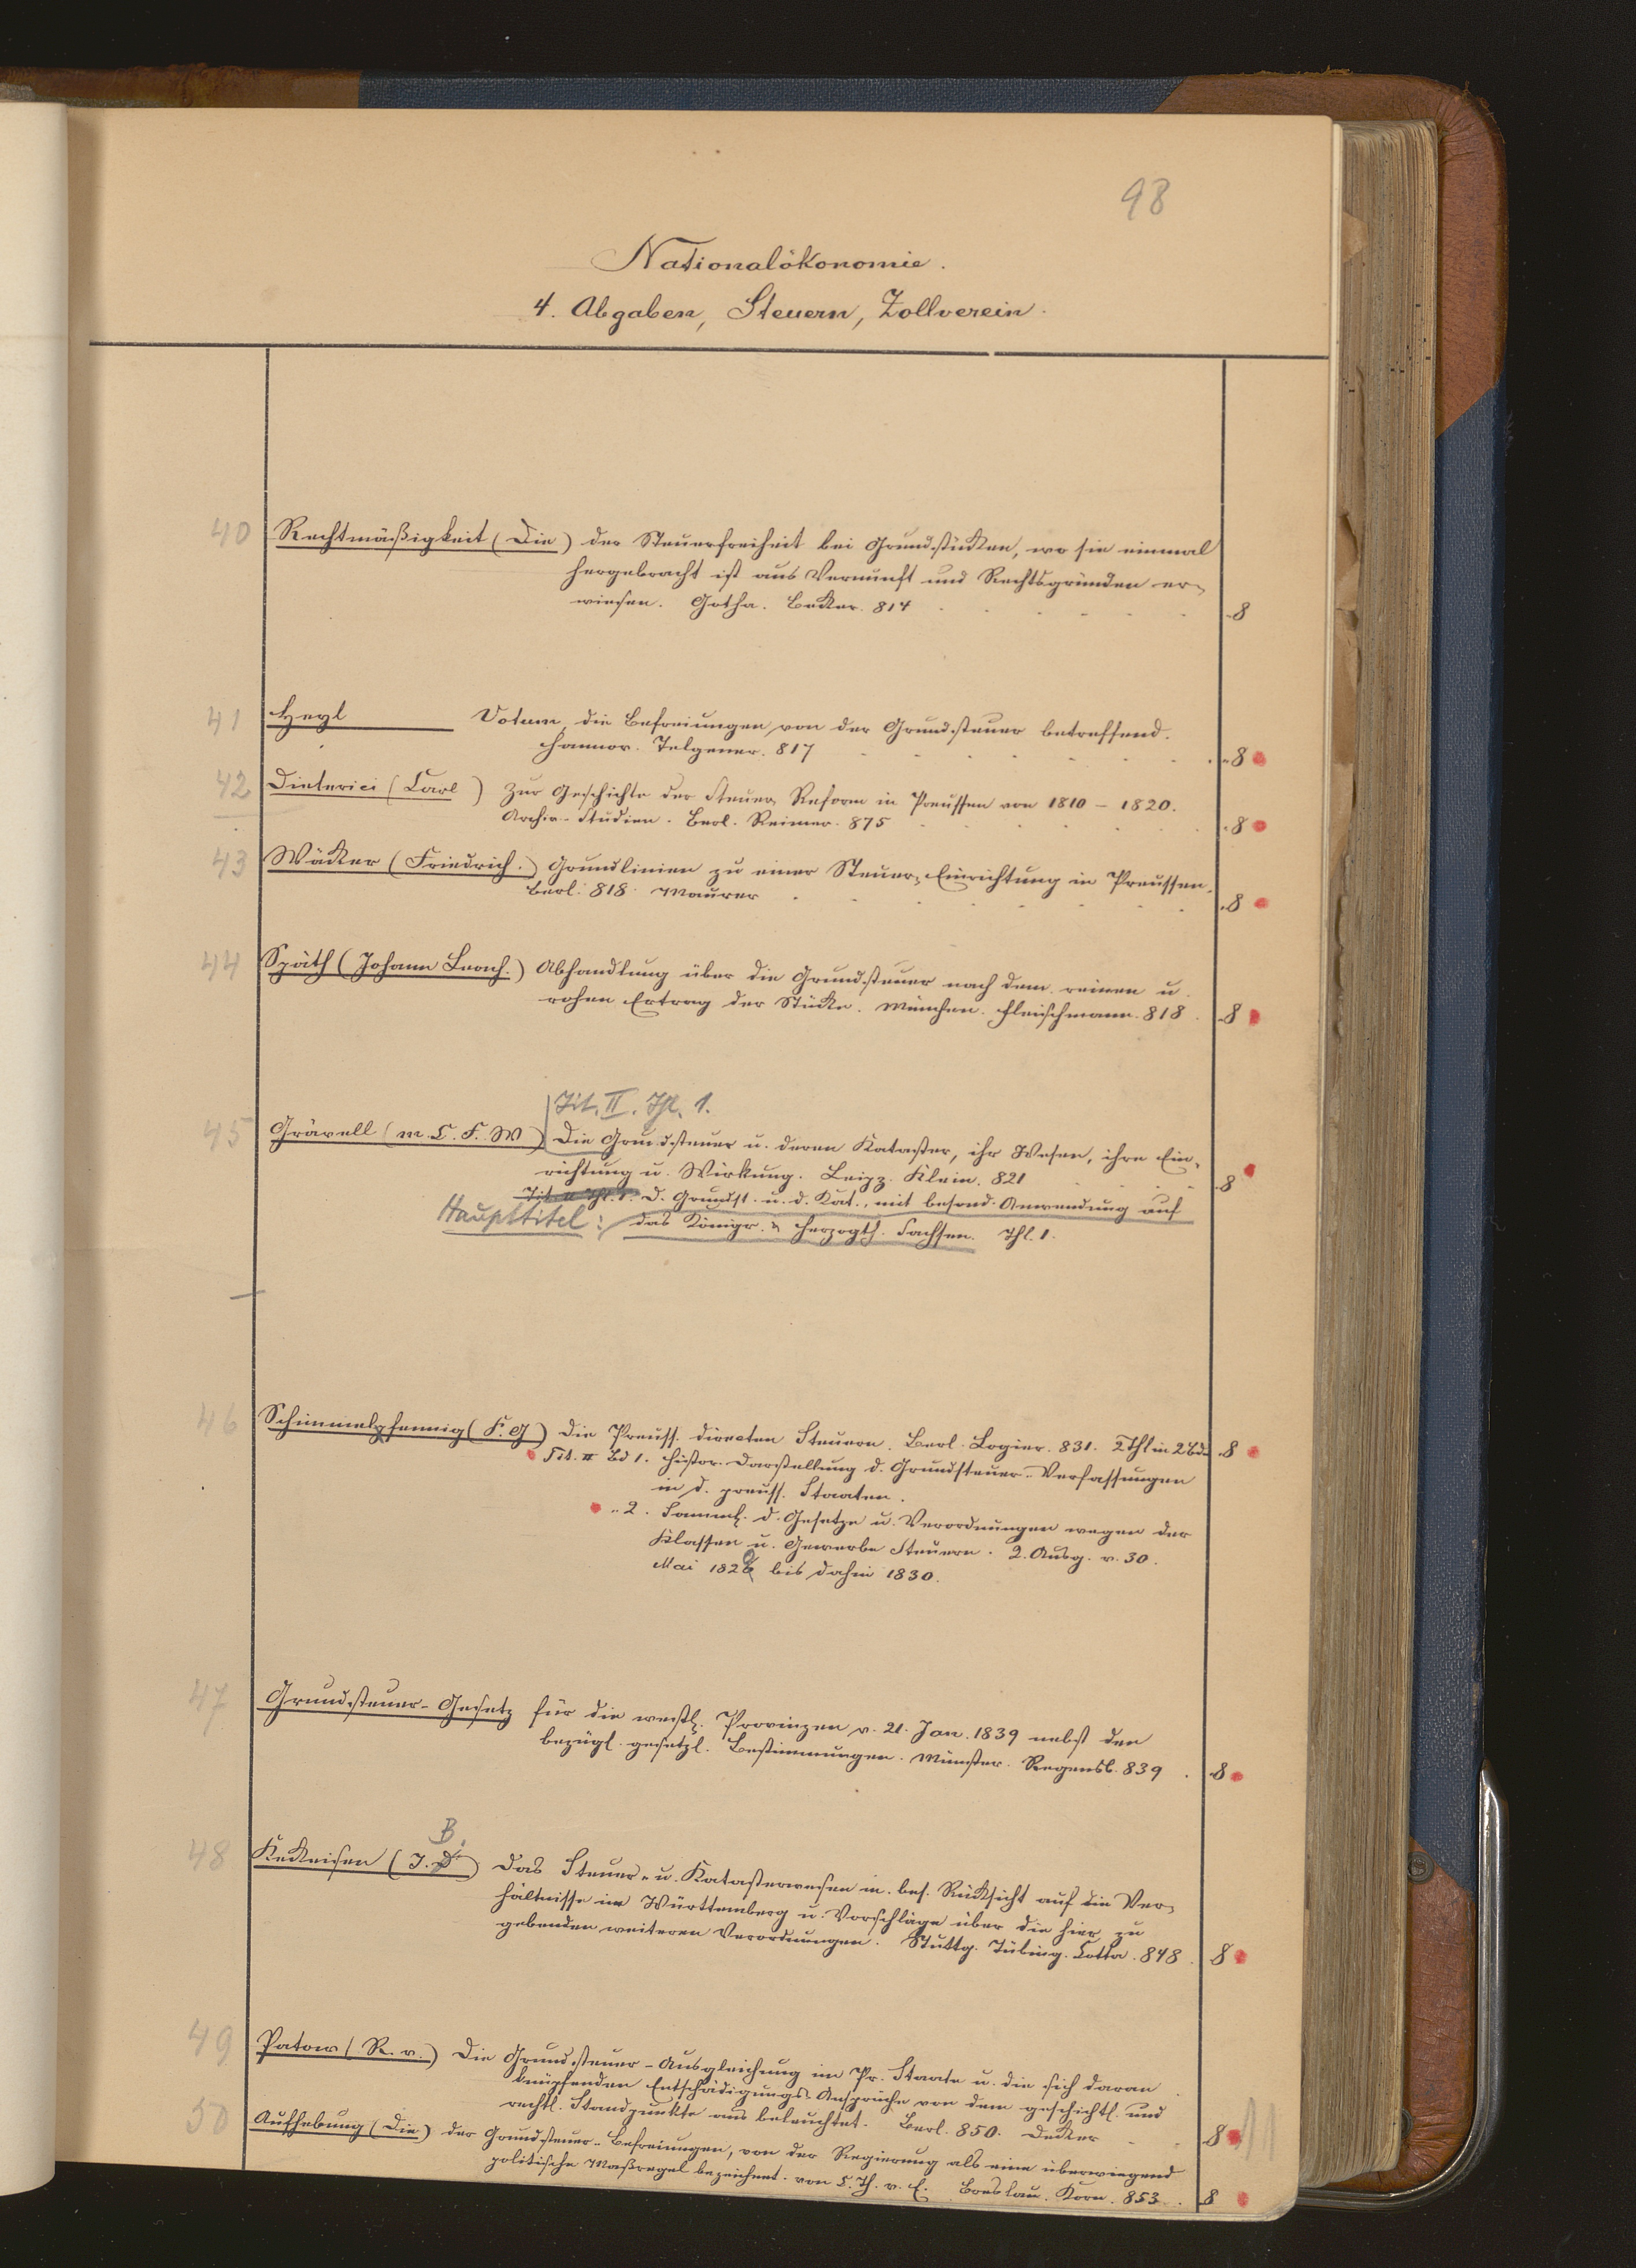 98
Nationalökonomie.
4. Abgaben, Steuern, Zollverein.
40 Rechtmäßigkeit (Die) der Steuerfreiheit bei Grundstücken, wo sie einmal
hergebracht ist aus Vernunft und Rechtsgründen er-
wiesen. Gotha. Becker. 814 8
41 Heyl Votum, die Befreiungen von der Grundsteuer betreffend.
Hannov. Telgener. 817 8
42 Dieterici (Carl) Zur Geschichte der Steuer-Reform in Preussen von 1810 – 1820.
Archiv-Studien. Berl. Reimer. 875 8
43 Wäcker (Friedrich.) Grundlinien zu einer Steuer-Einrichtung in Preussen.
Berl. 818. Maurer 8
44 Späth (Johann Leonh.) Abhandlung über die Grundsteuer nach dem reinen u.
rohen Ertrag der Stücke. München. Fleischmann. 818. 8
Tit. II. Thl. 1.
45 Grävell (M. C. F. W) Die Grundsteuer u. deren Kataster, ihr Wesen, ihre Ein-
richtung u. Wirkung. Leipz. Klein. 821 8
Tit. II Thl. 1. D. Grundst. u. d. Kat., mit besond. Anwendung auf
Haupttitel: das Königr. u. Herzogth. Sachsen. Thl. 1.
46 Schimmelpfennig (F. G) Die Preuss. directen Steuern. Berl. Logier. 831. 2 Thl in 2 Bd. 8
Tit. II Bd 1. Histor. Darstellung d. Grundsteuer-Verfassungen
in d. preuss. Staaten.
" 2. Samml. d. Gesetze u. Verordnungen wegen der
Klassen u. Gewerbe Steuern. 2. Ausg. v. 30.
Mai 1820 bis dahin 1830.
47 Grundsteuer-Gesetz für die westl. Provinzen v. 21. Jan. 1839 nebst den
bezügl. gesetzl. Bestimmungen. Münster. Regensb. 839. 8
B.
48 Keckeisen (J. D.) Das Steuer- u. Katasterwesen m. bes. Rücksicht auf die Ver-
hältnisse in Württemberg u. Vorschläge über die hier zu
gebenden weiteren Verordnungen. Stuttg. Tübing. Cotta. 848. 8
49 Patow (R. v.) Die Grundsteuer-Ausgleichung im Pr. Staate u. die sich daran
knüpfenden Entschädigungs-Ansprüche von dem geschichtl. und
rechtl. Standpunkte aus beleuchtet. Berl. 850. Decker 8
50 Aufhebung (Die) der Grundsteuer-Befreiungen, von der Regierung als eine überwiegend
politische Maßregel bezeichnet. von C. Th. v. E. Breslau. Korn. 853. 8